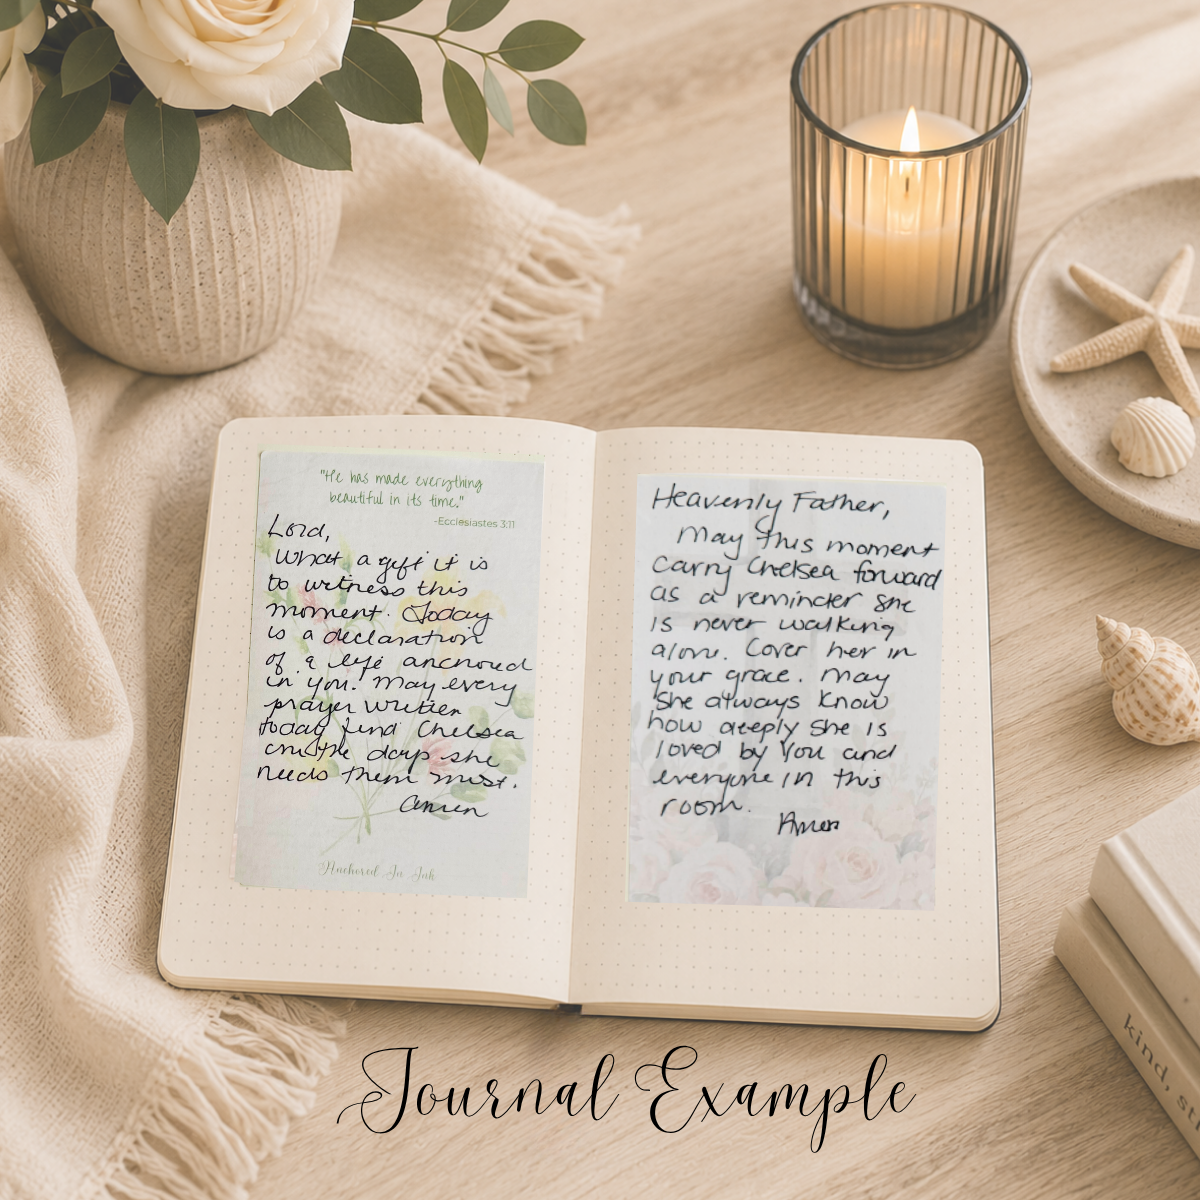 "He has made everything
beautiful in its time."
-Ecclesiastes 3:11
Lord,
What a gift it is
to witness this
moment. Today
is a declaration
of a life anchored
in you. May every
prayer written
today find Chelsea
on the days she
needs them most.
Amen
Anchored In Ink
Heavenly Father,
May this moment
Carry Chelsea forward
as a reminder she
is never walking
alone. Cover her in
your grace. May
She always know
how deeply she is
loved by You and
everyone in this
room.
Amen
kind, sti
Journal Example